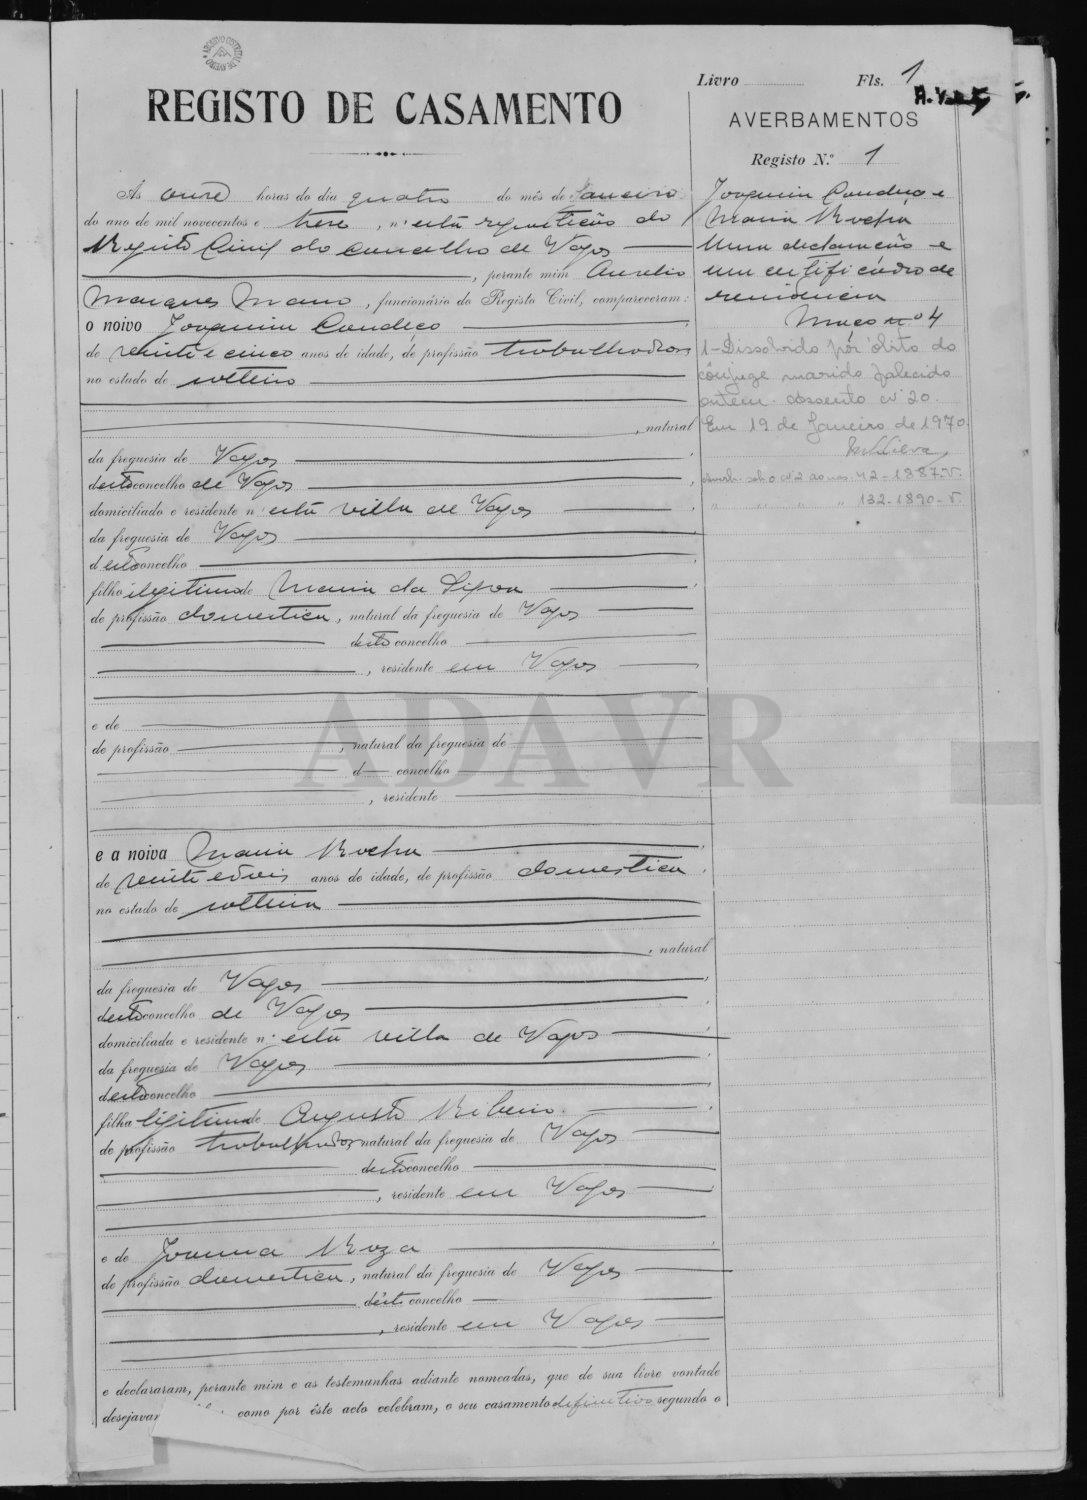 ARQUIVO DISTRITAL DE AVEIRO
Livro Fls. 1
REGISTO DE CASAMENTO
AVERBAMENTOS
Registo N.º 1
Joaquim Condeço e
Maria Rocha
Uma declaração e
um certificado de
residencia
Maço nº 4
1-Dissolvido por óbito do
cônjuge marido falecido
ontem. Assento nº 20.
Em 19 de Janeiro de 1970.
42-1887-V.
132-1890-V.
Às onze horas do dia quatro do mês de Janeiro
do ano de mil novecentos e treze, n'esta repartição do
Registo Civil do concelho de Vagos
, perante mim Aurelio
Marques Mano, funcionário do Registo Civil, compareceram:
o noivo Joaquim Condeço
de vinte e cinco anos de idade, de profissão trabalhador
no estado de solteiro
, natural
da freguesia de Vagos
deste concelho de Vagos
domiciliado e residente n'esta villa de Vagos
da freguesia de Vagos
deste concelho
filho ilegitimo de Maria da Silva
de profissão domestica, natural da freguesia de Vagos
deste concelho
, residente em Vagos
e de
de profissão , natural da freguesia de
d concelho
, residente
ADAVR
e a noiva Maria Rocha
de vinte e dois anos de idade, de profissão domestica
no estado de solteira
, natural
da freguesia de Vagos
deste concelho de Vagos
domiciliada e residente n'esta villa de Vagos
da freguesia de Vagos
deste concelho
filha legitima de Augusto Ribeiro
de profissão trabalhador, natural da freguesia de Vagos
deste concelho
, residente em Vagos
e de Joanna Roza
de profissão domestica, natural da freguesia de Vagos
deste concelho
, residente em Vagos
e declararam, perante mim e as testemunhas adiante nomeadas, que de sua livre vontade
desejavam como por êste acto celebram, o seu casamento definitivo segundo o